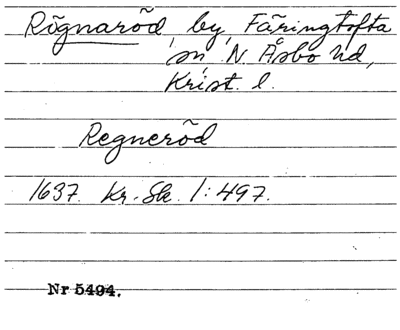 Rögnaröd, by, Färingtofta
sn N Åsbo hd,
Krist. l.
Regneröd
1637 Kr. Sk. 1:497.
Nr 5494.